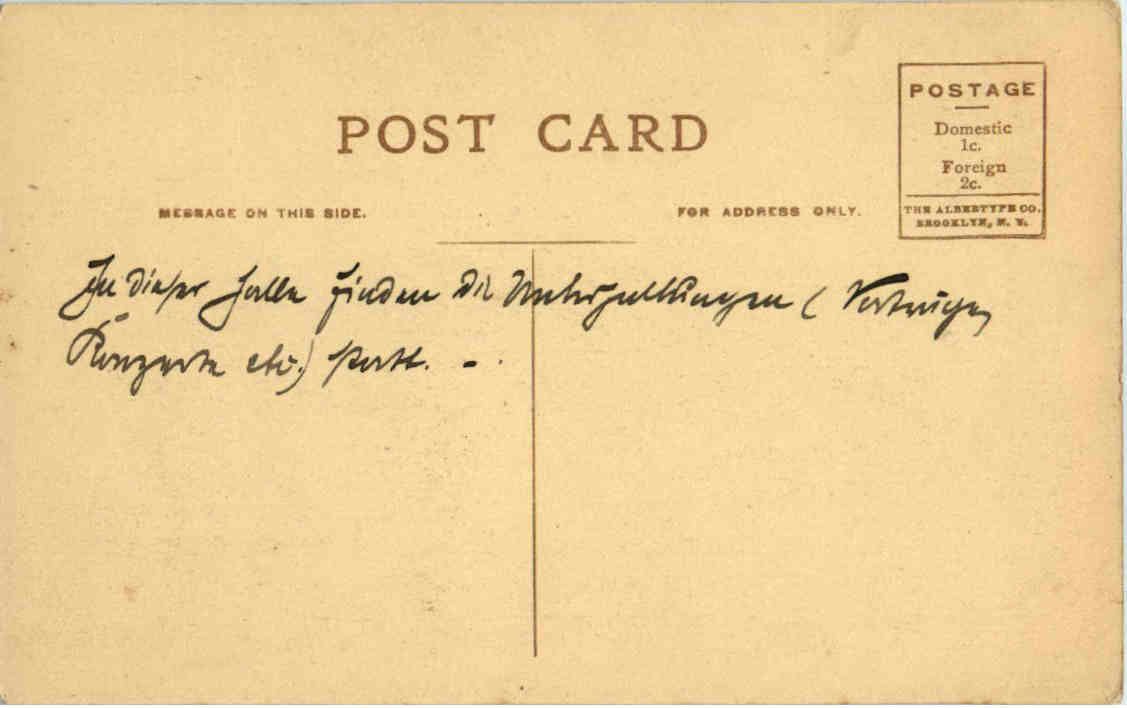 POST CARD
MESSAGE ON THIS SIDE.
FOR ADDRESS ONLY.
POSTAGE
Domestic
1c.
Foreign
2c.
THE ALBERTYPE CO.
BROOKLYN, N. Y.
In dieser Halle finden die Unterhaltungen (Vorträge,
Konzerte etc.) statt. -